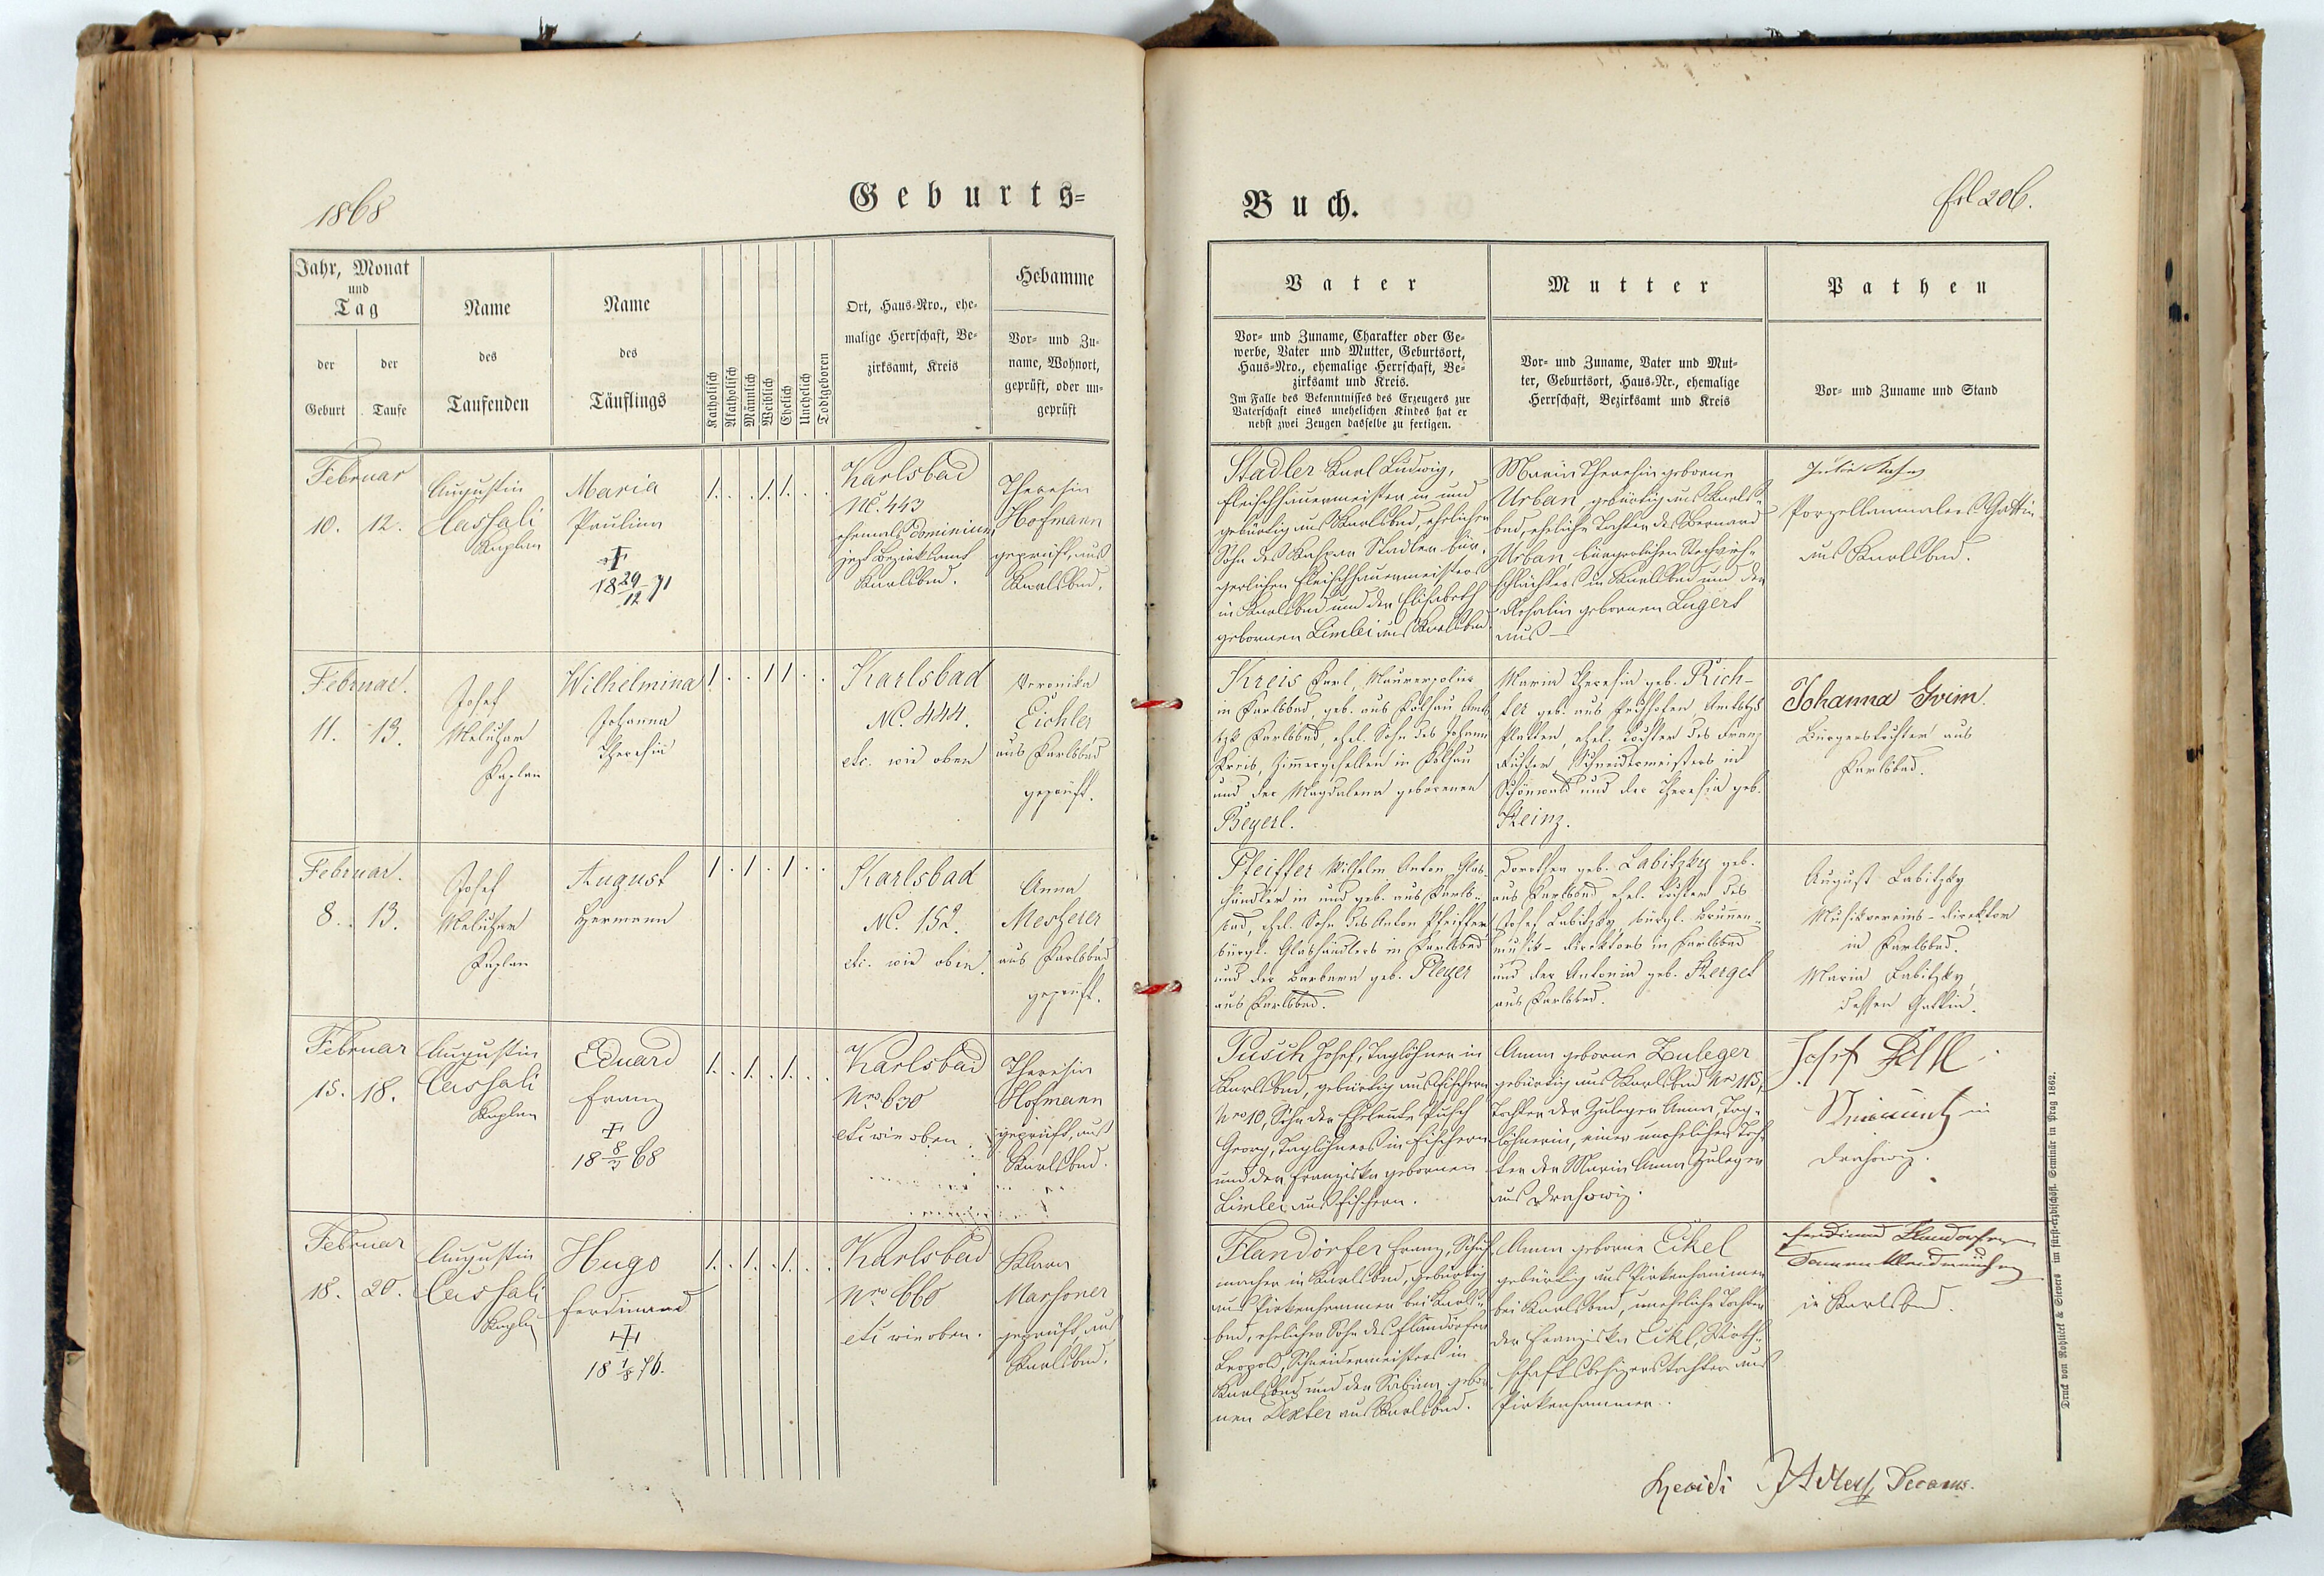 1868
Geburts=
Jahr, Monat
und
Tag
der
Geburt
der
Taufe
Name
des
Taufenden
Name
des
Täuflings
Katholisch
Akatholisch
Männlich
Weiblich
Ehelich
Unehelich
Todtgeboren
Ort, Haus-Nro., ehe-
malige Herrschaft, Be-
zirksamt, Kreis
Hebamme
Vor- und Zu-
name, Wohnort,
geprüft, oder un-
geprüft
Februar
10. 12.
Augustin
Kaplan
Maria
Paulina
†
18 29/12 71
Karlsbad
NC. 443
ehemals Dominium
jezt Bezirksamt
Karlsbad.
Theresia
Hofmann
geprüft, aus
Karlsbad.
Februar.
11. 13.
Josef
Meluzar
Kaplan
Wilhelmina
Johanna
Theresia
Karlsbad
NC. 444.
etc. wie oben
Veronika
Eichler
aus Karlsbad
geprüft.
Februar.
8. 13.
Josef
Meluzar
Kaplan
August
Hermann
Karlsbad
NC. 152.
etc. wie oben.
Anna
Mescherer
aus Karlsbad
geprüft.
Februar
15. 18.
Augustin
Kaplan
Eduard
Franz
†
18 8/7 68
Karlsbad
Nro 630
etc wie oben.
Theresia
Hofmann
geprüft, aus
Karlsbad.
Februar
18. 20.
Augustin
Kaplan
Hugo
Ferdinand
†
18 1/8 76.
Karlsbad
Nro 660
etc wie oben.
Klara
Marsoner
geprüft, aus
Karlsbad.
Buch.
fol 206.
Vater
Vor- und Zuname, Charakter oder Ge-
werbe, Vater und Mutter, Geburtsort,
Haus-Nro., ehemalige Herrschaft, Be-
zirksamt und Kreis.
Im Falle des Bekenntnisses des Erzeugers zur
Vaterschaft eines unehelichen Kindes hat er
nebst zwei Zeugen dasselbe zu fertigen.
Mutter
Vor- und Zuname, Vater und Mut-
ter, Geburtsort, Haus-Nr., ehemalige
Herrschaft, Bezirksamt und Kreis
Pathen
Vor- und Zuname und Stand
Stadler Karl Ludwig,
Fleischhauermeister in und
gebürtig aus Karlsbad, ehelicher
Sohn des Kaspar Stadler bür-
gerlichen Fleischhauermeisters
in Karlsbad und der Elisabeth
gebornen Limlei aus Karlsbad.
Maria Theresia geborne
Urban, gebürtig aus Karls-
bad, eheliche Tochter des Bernard
Urban, bürgerlichen
in Karlsbad und der
Rosalia gebornen Lugert
aus —
Porzellanmalers Gattin
aus Karlsbad.
Kreis Karl, Maurerpolier
in Karlsbad, geb. aus
Karlsbad, ehel. Sohn des Johann
Kreis, Zimmergesellen in
und der Magdalena gebornen
Beyerl.
Maria Theresia geb. Rich-
ter geb. aus
Platten, ehel. Tochter des Franz
Richter, Schneidermeisters in
Schönwald und der Theresia geb.
Heinz.
Johanna Grim.
Bürgerstochter aus
Karlsbad.
Pfeiffer Wilhelm Anton, Glas-
händler in und geb. aus Karls-
bad, ehel. Sohn des Anton Pfeiffer
bürgl. Glashändlers in Karlsbad
und der Barbara geb. Pleyer
aus Karlsbad.
Dorothea geb. Labitzky geb.
aus Karlsbad ehel. Tochter des
Josef Labitzky, bürgl. Brunnen-
musik-Direktors in Karlsbad
und der Antonia geb. Herget
aus Karlsbad.
August Labitzky
Musikvereins-Direktor
in Karlsbad.
Maria Labitzky,
dessen Gattin.
Pusch Josef, Taglöhner in
Karlsbad, gebürtig aus Fischern
Nro 10, Sohn der Eheleute Pusch
Georg, Taglöhners in Fischern
und der Franziska gebornen
Limlei aus Fischern.
Anna geborne Zuleger
gebürtig aus Karlsbad Nro 115,
Tochter der Zuleger Anna, Tag-
löhnerin, einer unehelichen Toch-
ter der Maria Anna Zuleger
aus Drahowiz.
Josef
in
Drahowiz.
Flandorfer Franz, Schuh-
macher in Karlsbad, gebürtig
aus Pirkenhammer bei Karls-
bad, ehelicher Sohn des Flandorfer
Leopold, Schneidermeisters in
Karlsbad und der Sabina gebor-
nen Dexler aus Karlsbad.
Anna geborne Eikel
gebürtig aus Pirkenhammer
bei Karlsbad, uneheliche Tochter
der Franziska Eikl, Wirth-
schaftsbesitzerstochter aus
Pirkenhammer.
Ferdinand Flandorfer
in Karlsbad.
Decans.
Druck von Rohliček & Sievers im fürst-erzbischöfl. Seminär in Prag 1862.